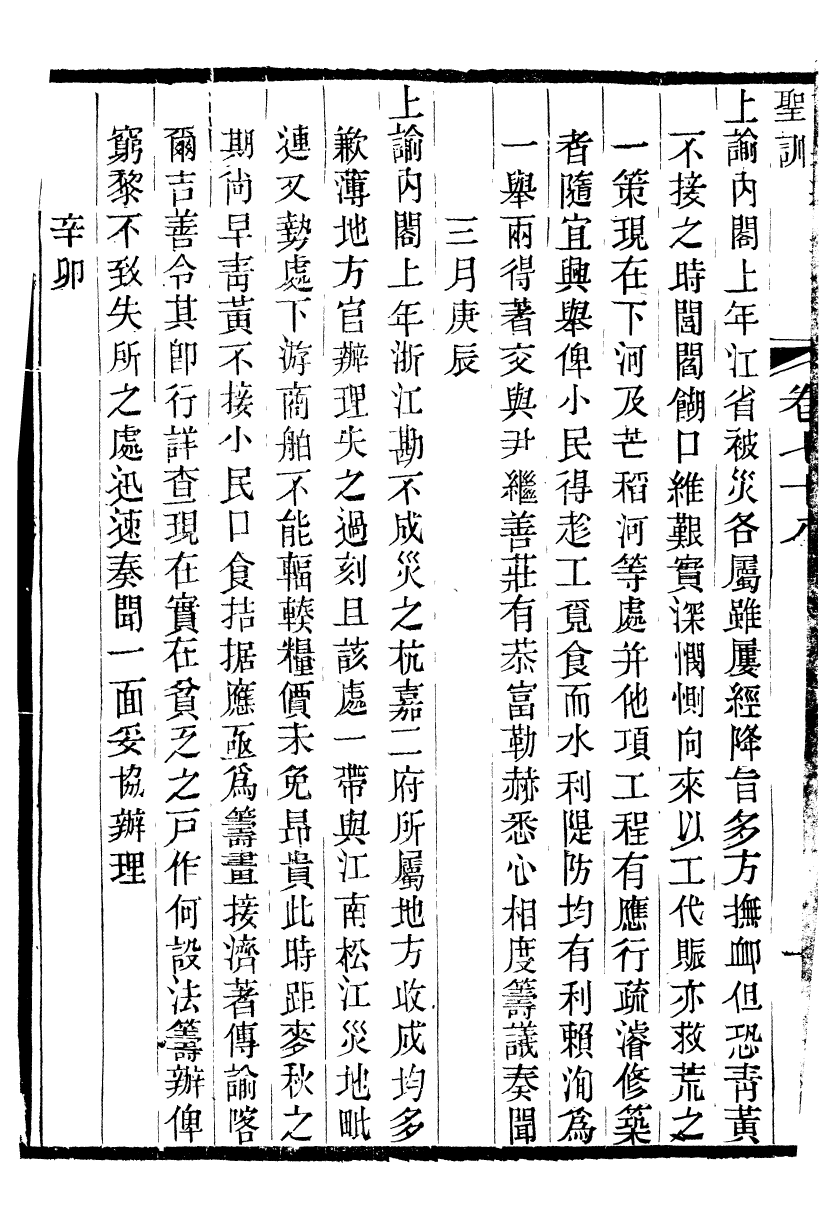 聖訓 卷七十八 一
上諭內閣上年江省被災各屬雖屢經降旨多方撫卹但恐青黃
不接之時閭閻餬口維艱實深憫惻向來以工代賑亦救荒之
一策現在下河及芒稻河等處并他項工程有應行疏濬修築
者隨宜興舉俾小民得趁工覓食而水利隄防均有利賴洵爲
一舉兩得著交與尹繼善莊有恭富勒赫悉心相度籌議奏聞
三月庚辰
上諭內閣上年浙江勘不成災之杭嘉二府所屬地方收成均多
歉薄地方官辦理失之過刻且該處一帶與江南松江災地毗
連又勢處下游商舶不能輻輳糧價未免昂貴此時距麥秋之
期尙早青黃不接小民口食拮据應亟爲籌畫接濟著傳諭喀
爾吉善令其卽行詳查現在實在貧乏之戶作何設法籌辦俾
窮黎不致失所之處迅速奏聞一面妥協辦理
辛卯